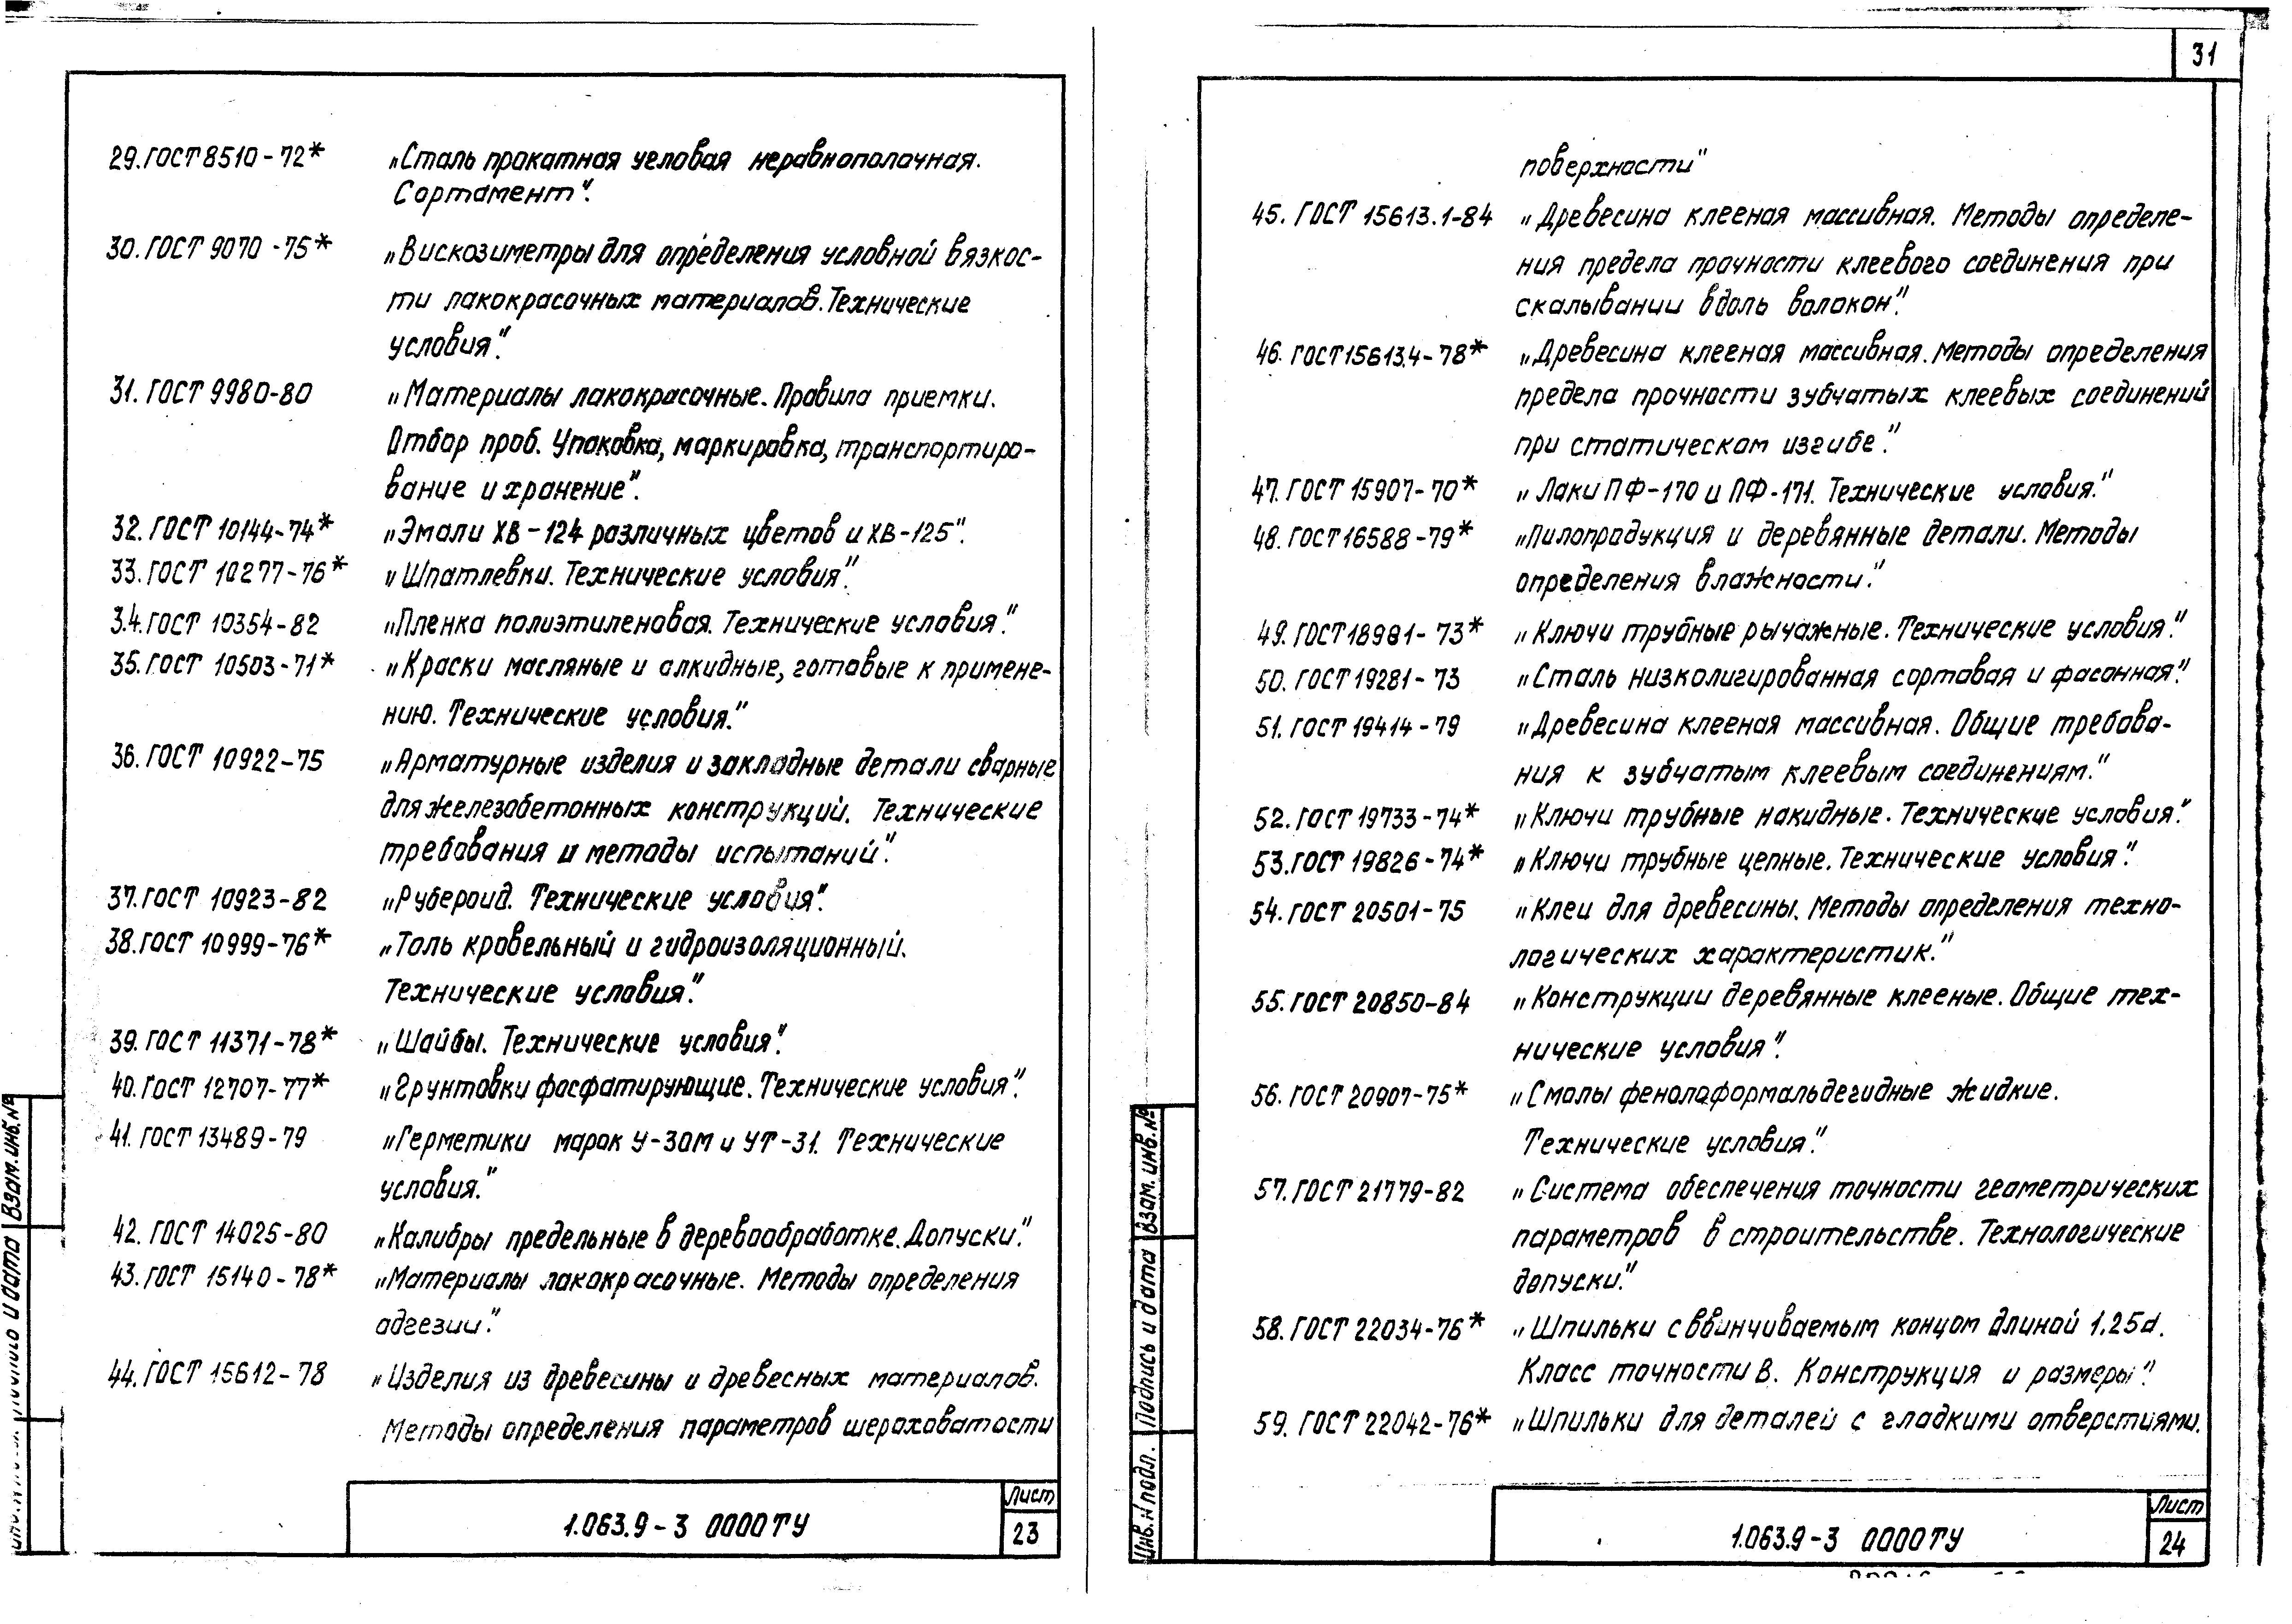 29. ГОСТ 8510-72* „Сталь прокатная угловая неравнополочная.
Сортамент".
30. ГОСТ 9070-75* „Вискозиметры для определения условной вязкос-
ти лакокрасочных материалов. Технические
условия".
31. ГОСТ 9980-80 „Материалы лакокрасочные. Правила приемки.
Отбор проб. Упаковка, маркировка, транспортиро-
вание и хранение".
32. ГОСТ 10144-74* „Эмали ХВ-124 различных цветов и ХВ-125".
33. ГОСТ 10277-76* „Шпатлевки. Технические условия".
3.4. ГОСТ 10354-82 „Пленка полиэтиленовая. Технические условия."
35. ГОСТ 10503-71* „Краски масляные и алкидные, готовые к примене-
нию. Технические условия."
36. ГОСТ 10922-75 „Арматурные изделия и закладные детали сварные
для железобетонных конструкций. Технические
требования и методы испытаний".
37. ГОСТ 10923-82 „Рубероид. Технические условия".
38. ГОСТ 10999-76* „Толь кровельный и гидроизоляционный.
Технические условия".
39. ГОСТ 11371-78* „Шайбы. Технические условия".
40. ГОСТ 12707-77* „Грунтовки фосфатирующие. Технические условия".
41. ГОСТ 13489-79 „Герметики марок У-30М и УТ-31. Технические
условия."
42. ГОСТ 14025-80 „Калибры предельные в деревообработке. Допуски".
43. ГОСТ 15140-78* „Материалы лакокрасочные. Методы определения
адгезии."
44. ГОСТ 15612-78 „Изделия из древесины и древесных материалов.
Методы определения параметров шероховатости
1.063.9-3 0000ТУ
Лист
23
Взам. инв. №
31
поверхности"
45. ГОСТ 15613.1-84 „Древесина клееная массивная. Методы определе-
ния предела прочности клеевого соединения при
скалывании вдоль волокон".
46. ГОСТ 15613.4-78* „Древесина клееная массивная. Методы определения
предела прочности зубчатых клеевых соединений
при статическом изгибе."
47. ГОСТ 15907-70* „Лаки ПФ-170 и ПФ-171. Технические условия."
48. ГОСТ 16588-79* „Пилопродукция и деревянные детали. Методы
определения влажности."
49. ГОСТ 18981-73* „Ключи трубные рычажные. Технические условия."
50. ГОСТ 19281-73 „Сталь низколигированная сортовая и фасонная".
51. ГОСТ 19414-79 „Древесина клееная массивная. Общие требова-
ния к зубчатым клеевым соединениям."
52. ГОСТ 19733-74* „Ключи трубные накидные. Технические условия".
53. ГОСТ 19826-74* „Ключи трубные цепные. Технические условия."
54. ГОСТ 20501-75 „Клеи для древесины. Методы определения техно-
логических характеристик."
55. ГОСТ 20850-84 „Конструкции деревянные клееные. Общие тех-
нические условия".
56. ГОСТ 20907-75* „Смолы фенолоформальдегидные жидкие.
Технические условия."
57. ГОСТ 21779-82 „Система обеспечения точности геометрических
параметров в строительстве. Технологические
допуски."
58. ГОСТ 22034-76* „Шпильки с ввинчиваемым концом длиной 1.25d.
Класс точности В. Конструкция и размеры".
59. ГОСТ 22042-76* „Шпильки для деталей с гладкими отверстиями.
1.063.9-3 0000ТУ
Лист
24
Инв. № подл. Подпись и дата Взам. инв. №